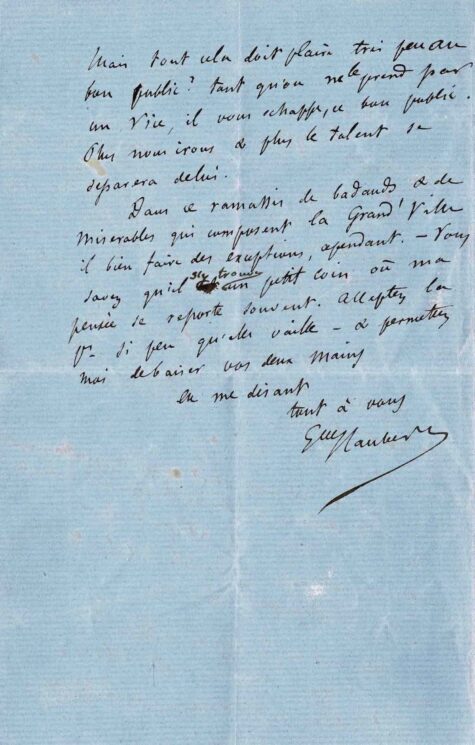 Mais tout cela doit plaire très peu au
bon public? tant qu'on ne le prend par
un Vice, il vous échappe, ce bon public.
Plus nous irons & plus le talent se
séparera de lui.
Dans ce ramassis de badauds & de
miserables qui composent la Grand' Ville
il bien faire des exceptions, cependant. – Vous
savez qu'il s'y trouve un petit coin où ma
pensée se reporte souvent. Acceptez la
pr. si peu qu'elle vaille – & permettez
moi de baiser vos deux mains
en me disant
tout à vous
Gve Flaubert